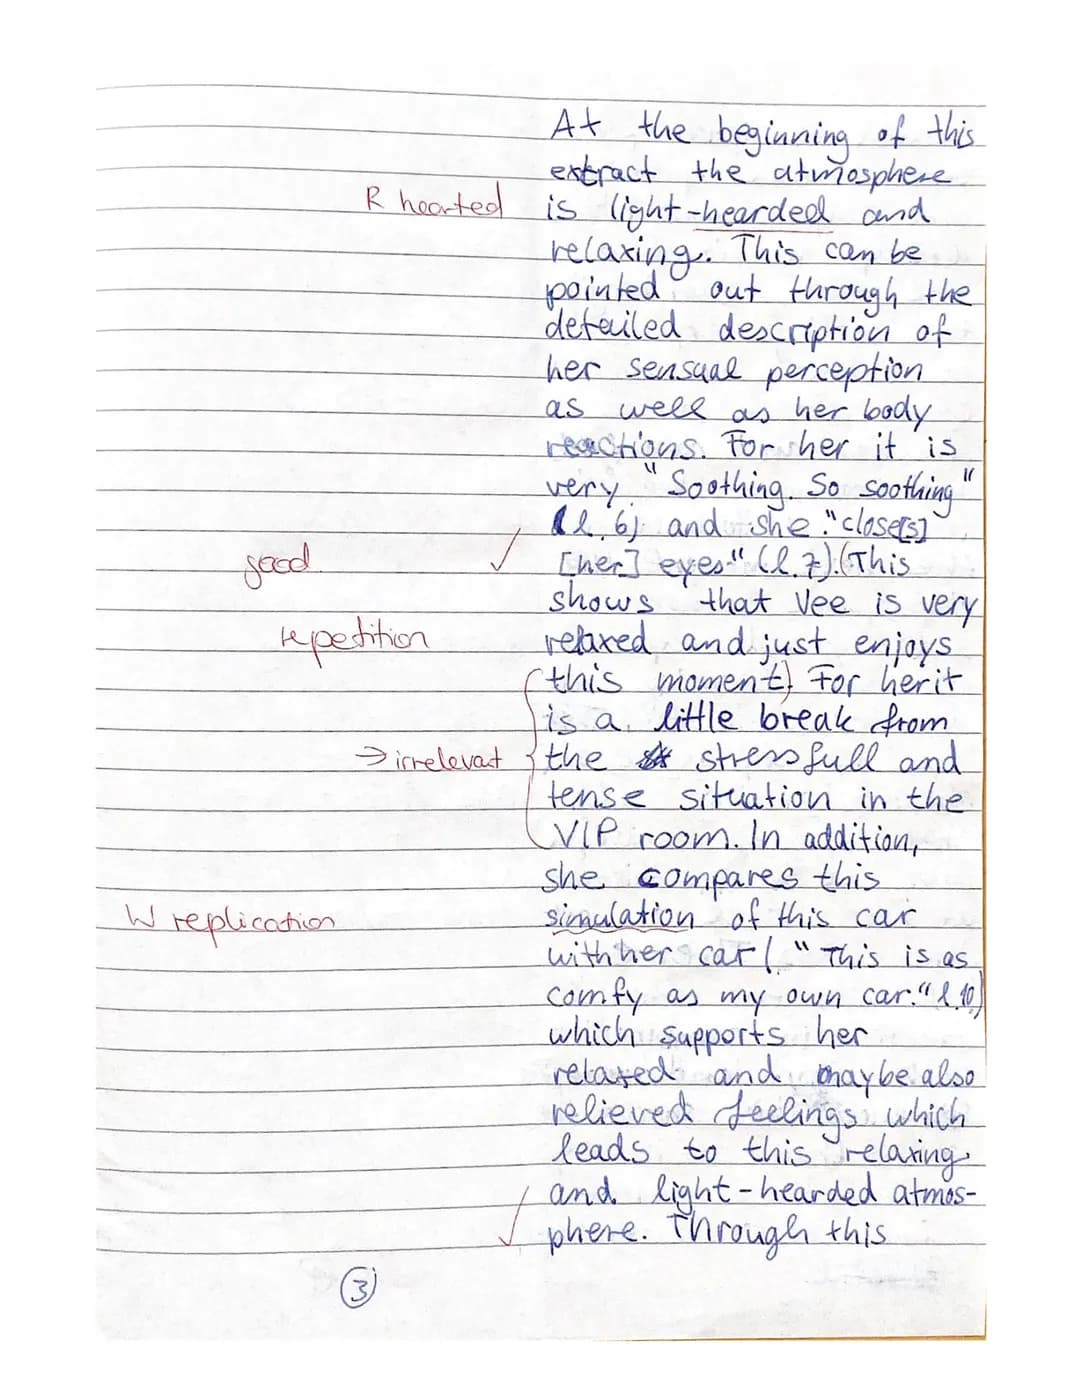 At the beginning of this
extract the atmosphere
R hearted is light-hearded and
relaxing. This can be
pointed out through the
detailed description of
her sensual perception
as well as her body
reactions. For her it is
very "Soothing. So soothing"
(l. 6) and she "close[s]
good [her] eyes" (l. 7). (This
shows that Vee is very
repetition relaxed and just enjoys
this moment) For her it
is a little break from
→ irrelevant the stressfull and
tense situation in the
VIP room. In addition,
she compares this
W replication simulation of this car
with her car ( "This is as
comfy as my own car." l. 10)
which supports her
relaxed and maybe also
relieved feelings which
leads to this relaxing
and light-hearded atmos-
phere. Through this
3